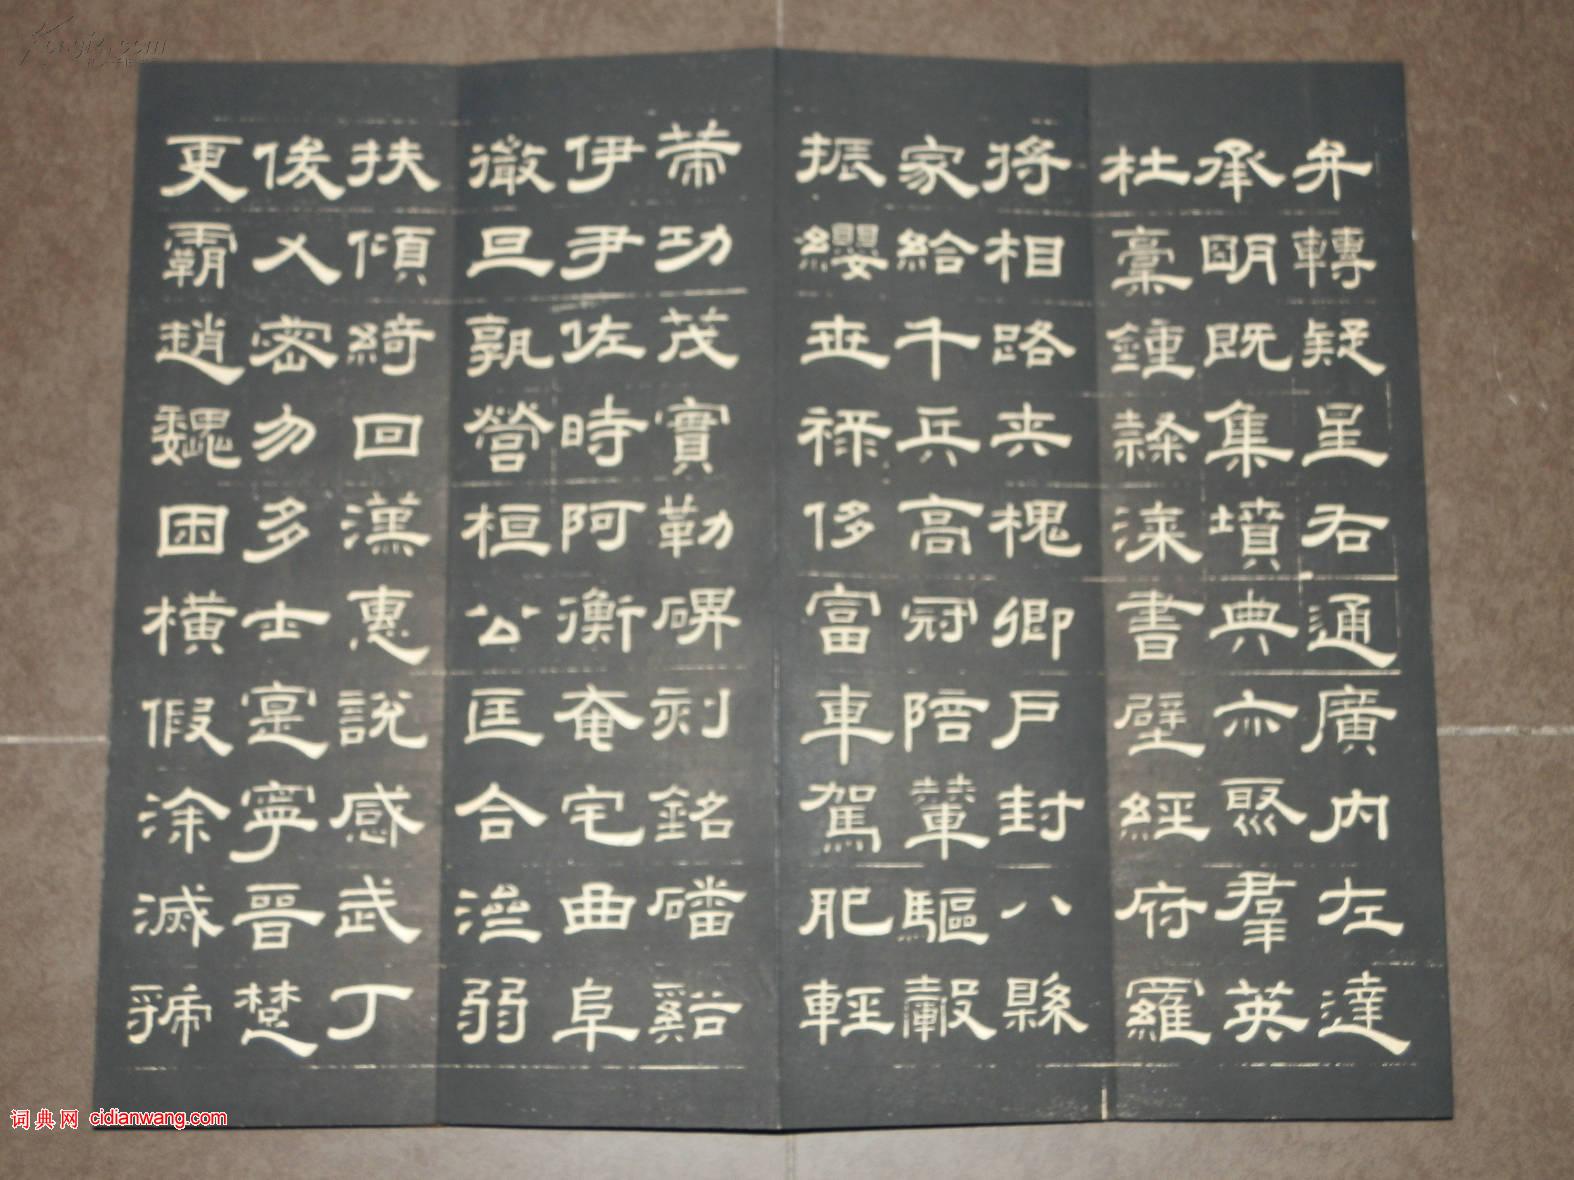 弁轉疑星右通廣内左達
承明既集墳典亦聚羣英
杜稾鍾隸漆書壁經府羅
将相路夾槐卿戶封八縣
家給千兵高冠陪輦驅轂
振纓世祿侈富車駕肥輕
策功茂實勒碑刻銘磻谿
伊尹佐時阿衡奄宅曲阜
微旦孰營桓公匡合濟弱
扶傾綺回漢惠說感武丁
俊乂密勿多士寔寧晉楚
更霸趙魏困橫假涂滅虢
词典网 cidianwang.com